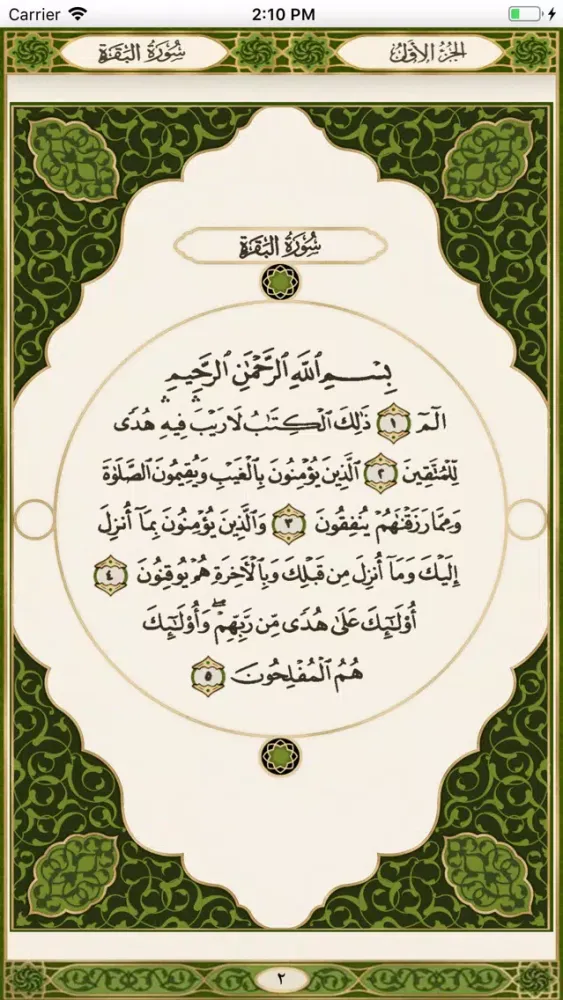 Carrier 2:10 PM
الجزء الأول سورة البقرة
سُورَةُ البَقَرَةِ
بِسْمِ ٱللَّهِ ٱلرَّحْمَٰنِ ٱلرَّحِيمِ
الٓمٓ ١ ذَٰلِكَ ٱلْكِتَٰبُ لَا رَيْبَ ۛ فِيهِ ۛ هُدًى
لِّلْمُتَّقِينَ ٢ ٱلَّذِينَ يُؤْمِنُونَ بِٱلْغَيْبِ وَيُقِيمُونَ ٱلصَّلَوٰةَ
وَمِمَّا رَزَقْنَٰهُمْ يُنفِقُونَ ٣ وَٱلَّذِينَ يُؤْمِنُونَ بِمَآ أُنزِلَ
إِلَيْكَ وَمَآ أُنزِلَ مِن قَبْلِكَ وَبِٱلْءَاخِرَةِ هُمْ يُوقِنُونَ ٤
أُو۟لَٰٓئِكَ عَلَىٰ هُدًى مِّن رَّبِّهِمْ ۖ وَأُو۟لَٰٓئِكَ
هُمُ ٱلْمُفْلِحُونَ ٥
٢